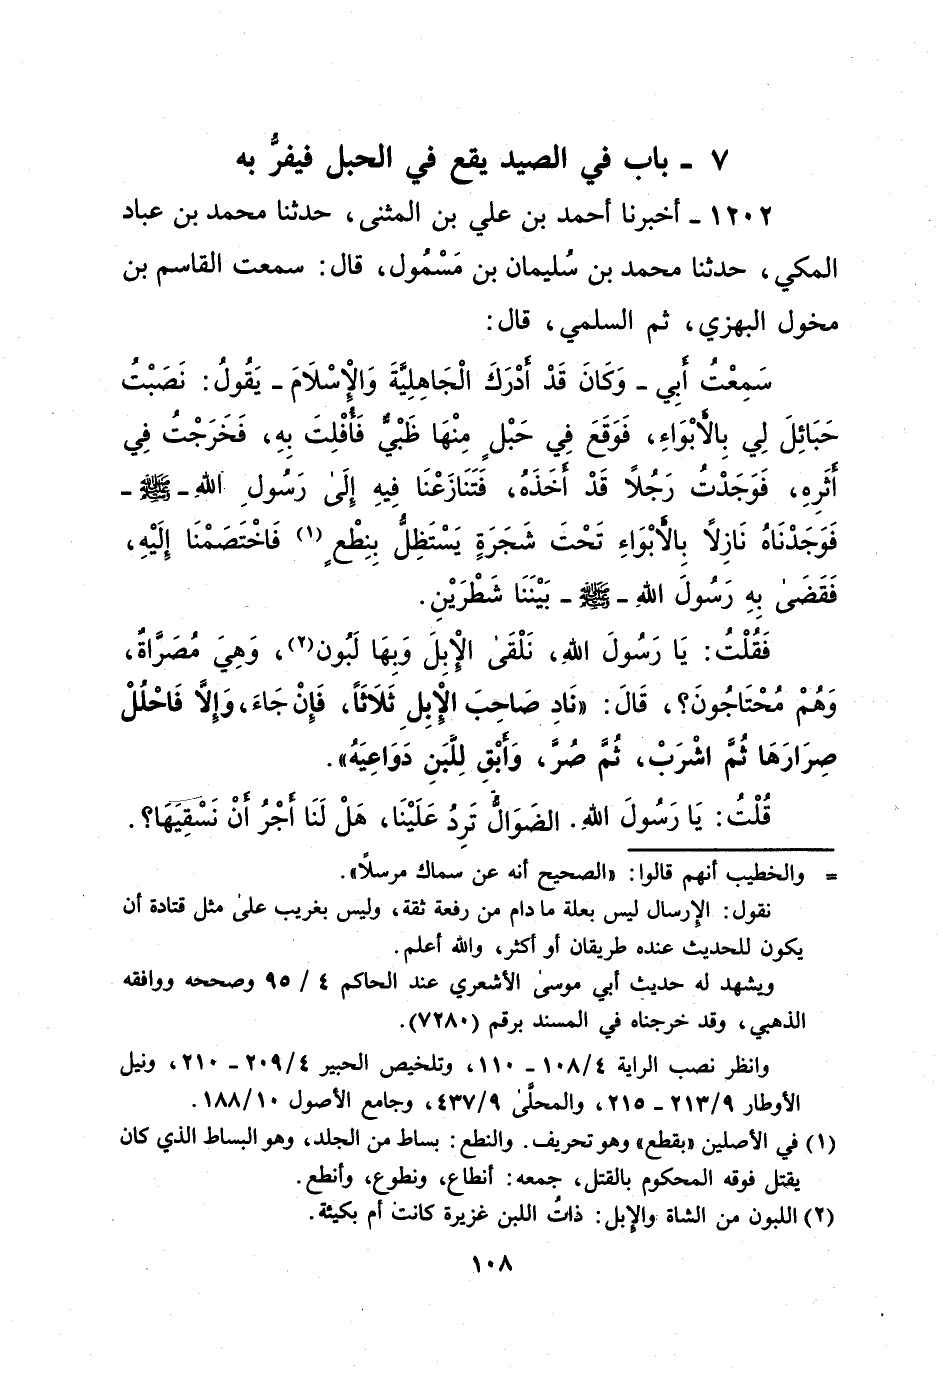 ٧ - باب في الصيد يقع في الحبل فيفرُّ به
١٢٠٢ - أخبرنا أحمد بن علي بن المثنى، حدثنا محمد بن عباد
المكي، حدثنا محمد بن سُليمان بن مَسْمُول، قال: سمعت القاسم بن
مخول البهزي، ثم السلمي، قال:
سَمِعْتُ أَبي - وَكَانَ قَدْ أَدْرَكَ الْجَاهِلِيَّةَ وَالْإِسْلَامَ - يَقُولُ: نَصَبْتُ
حَبَائِلَ لِي بِالْأَبْوَاءِ، فَوَقَعَ فِي حَبْلٍ مِنْهَا ظَبْيٌ فَأَفْلِتَ بِهِ، فَخَرَجْتُ فِي
أَثَرِهِ، فَوَجَدْتُ رَجُلاً قَدْ أَخَذَهُ، فَتَنَازَعْنَا فِيهِ إِلَىٰ رَسُولِ اللهِ - ﷺ -
فَوَجَدْنَاهُ نَازِلاً بِالْأَبْوَاءِ تَحْتَ شَجَرَةٍ يَسْتَظِلُّ بِنِطْعٍ (١) فَاخْتَصَمْنَا إِلَيْهِ،
فَقَضَىٰ بِهِ رَسُولَ اللهِ - ﷺ - بَيْنَنَا شَطْرَيْنِ.
فَقُلْتُ: يَا رَسُولَ اللهِ، نَلْقَىٰ الْإِبِلَ وَبِهَا لَبُون(٢)، وَهِيَ مُصَرَّاةٌ،
وَهُمْ مُحْتَاجُونَ؟، قَالَ: «نَادِ صَاحِبَ الْإِبِلِ ثَلَاثَاً، فَإِنْ جَاءَ، وَإِلَّا فَاحْلُلْ
صِرَارَهَا ثُمَّ اشْرَبْ، ثُمَّ صُرَّ، وَأَبْقِ لِلَّبَنِ دَوَاعِيَهُ».
قُلْتُ: يَا رَسُولَ اللهِ. الضَوَالُّ تَرِدُ عَلَيْنَا، هَلْ لَنَا أَجْرُ أَنْ نَسْقِيَهَا؟.
= والخطيب أنهم قالوا: «الصحيح أنه عن سماك مرسلاً».
نقول: الإرسال ليس بعلة ما دام من رفعة ثقة، وليس بغريب علىٰ مثل قتادة أن
يكون للحديث عنده طريقان أو أكثر، والله أعلم.
ويشهد له حديث أبي موسىٰ الأشعري عند الحاكم ٤ / ٩٥ وصححه ووافقه
الذهبي، وقد خرجناه في المسند برقم (٧٢٨٠).
وانظر نصب الراية ١٠٨/٤ - ١١٠، وتلخيص الحبير ٢٠٩/٤ - ٢١٠، ونيل
الأوطار ٢١٣/٩ - ٢١٥، والمحلَّىٰ ٤٣٧/٩، وجامع الأصول ١٨٨/١٠.
(١) في الأصلين «بقطع» وهو تحريف. والنطع: بساط من الجلد، وهو البساط الذي كان
يقتل فوقه المحكوم بالقتل، جمعه: أنطاع، ونطوع، وأنطع.
(٢) اللبون من الشاة والإبل: ذاتُ اللبن غزيرة كانت أم بكيئة.
١٠٨